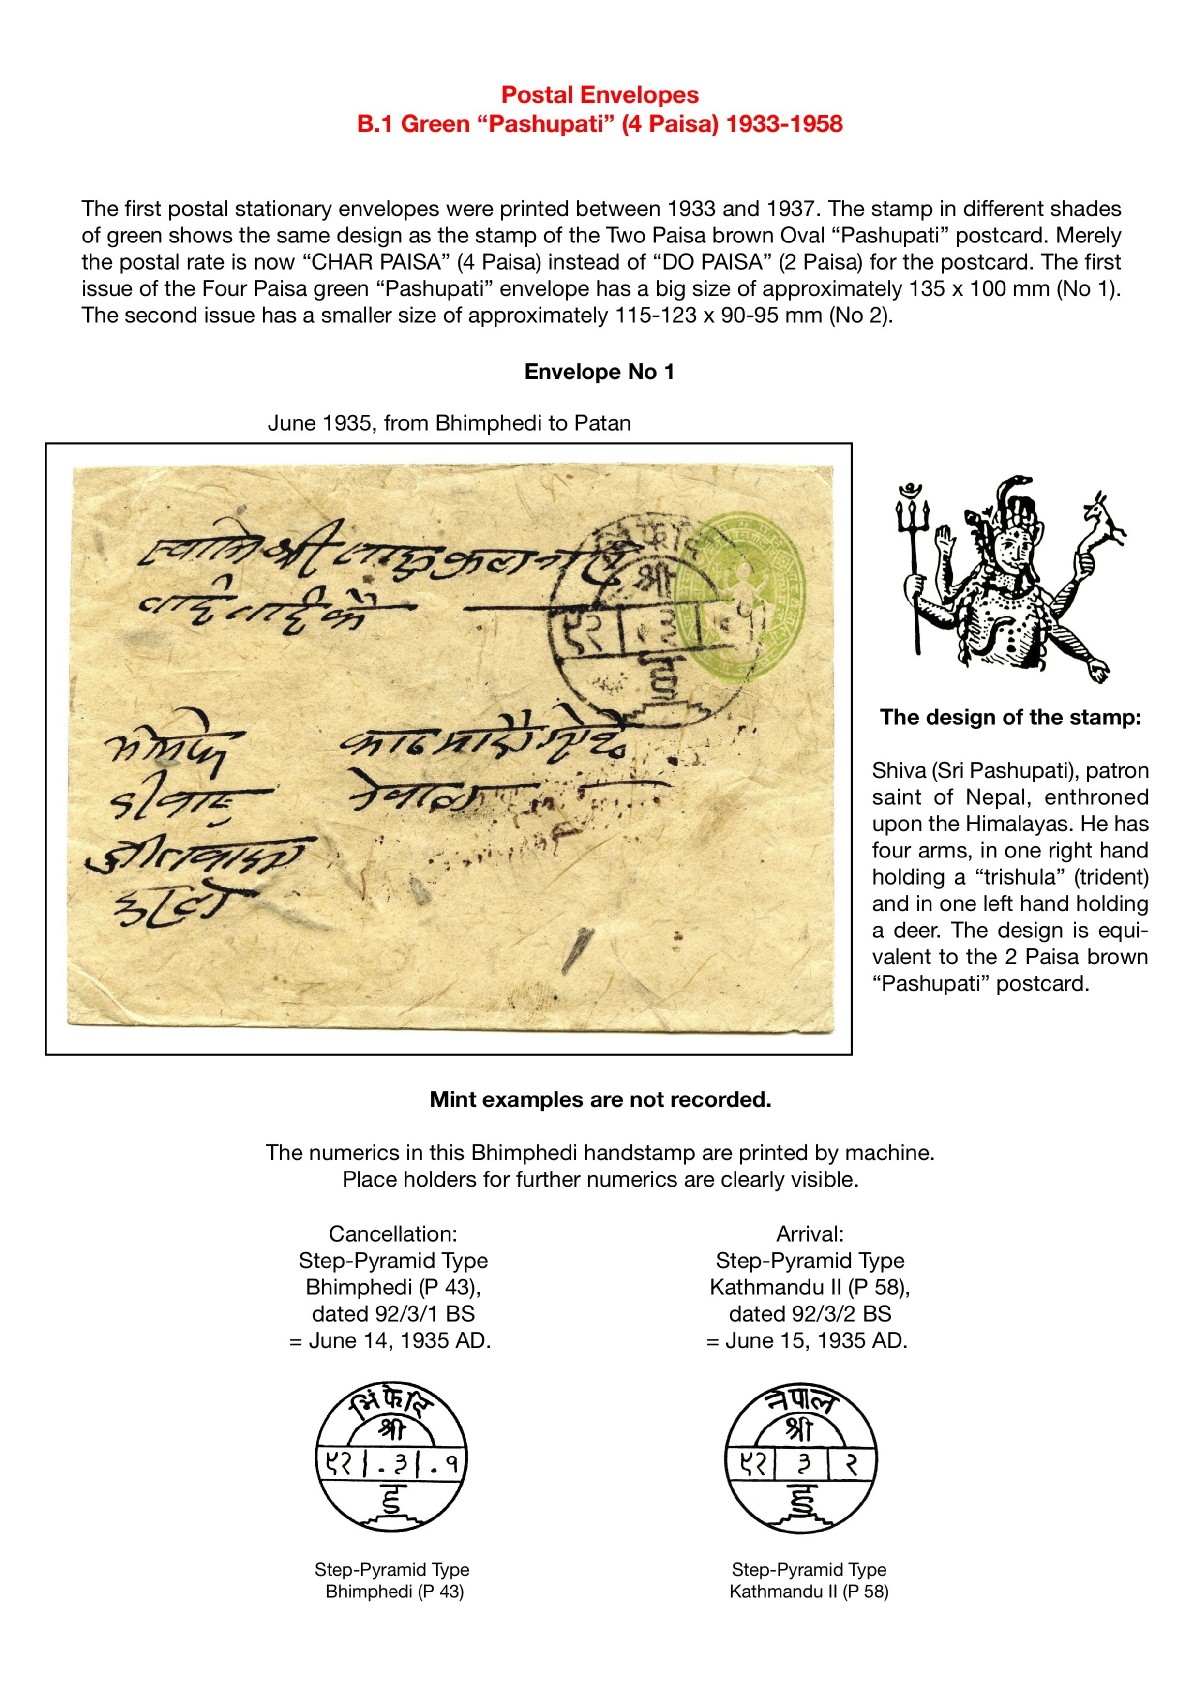 Postal Envelopes
B.1 Green “Pashupati” (4 Paisa) 1933-1958
The first postal stationary envelopes were printed between 1933 and 1937. The stamp in different shades
of green shows the same design as the stamp of the Two Paisa brown Oval “Pashupati” postcard. Merely
the postal rate is now “CHAR PAISA” (4 Paisa) instead of “DO PAISA” (2 Paisa) for the postcard. The first
issue of the Four Paisa green “Pashupati” envelope has a big size of approximately 135 x 100 mm (No 1).
The second issue has a smaller size of approximately 115-123 x 90-95 mm (No 2).
Envelope No 1
June 1935, from Bhimphedi to Patan
श्री
९२ ३ १
The design of the stamp:
Shiva (Sri Pashupati), patron
saint of Nepal, enthroned
upon the Himalayas. He has
four arms, in one right hand
holding a “trishula” (trident)
and in one left hand holding
a deer. The design is equi-
valent to the 2 Paisa brown
“Pashupati” postcard.
Mint examples are not recorded.
The numerics in this Bhimphedi handstamp are printed by machine.
Place holders for further numerics are clearly visible.
Cancellation:
Step-Pyramid Type
Bhimphedi (P 43),
dated 92/3/1 BS
= June 14, 1935 AD.
Arrival:
Step-Pyramid Type
Kathmandu II (P 58),
dated 92/3/2 BS
= June 15, 1935 AD.
भिंफेदि
श्री
९२ . ३ . १
नेपाल
श्री
९२ ३ २
Step-Pyramid Type
Bhimphedi (P 43)
Step-Pyramid Type
Kathmandu II (P 58)